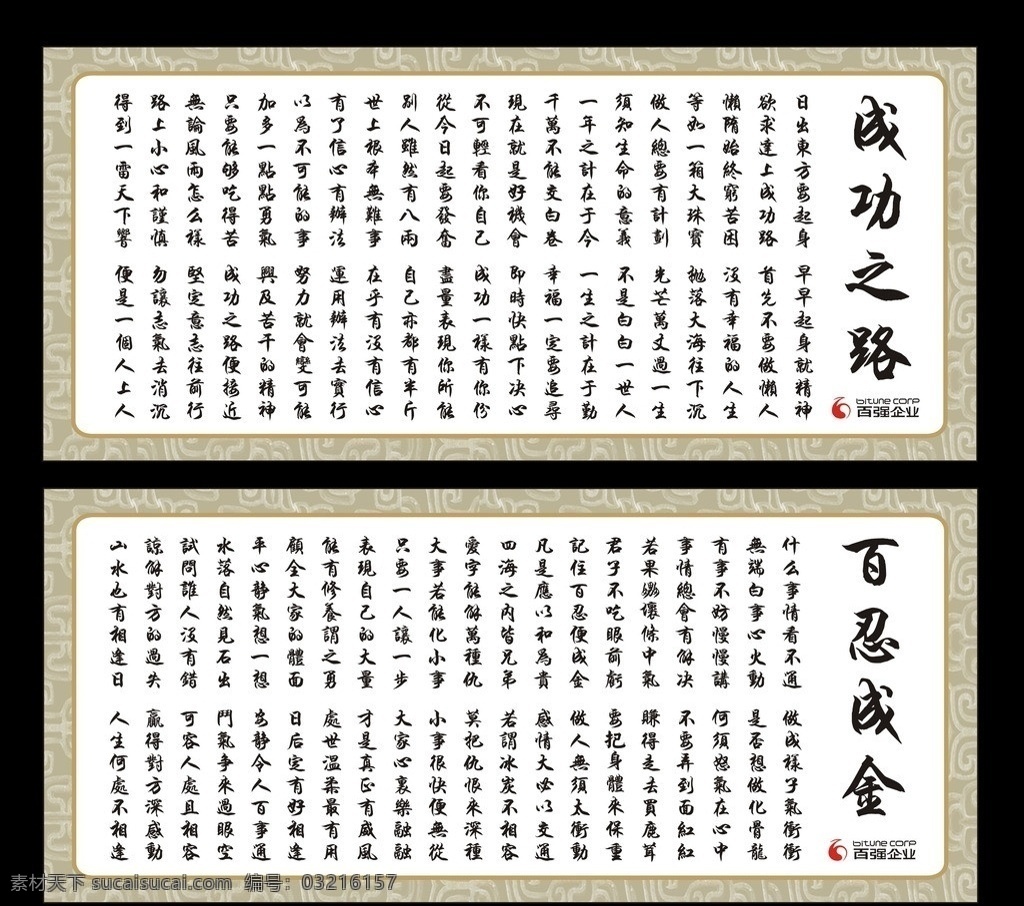 成功之路
日出東方要起身 早早起身就精神
欲求達上成功路 首先不要做懶人
懶隋始終窮苦困 沒有幸福的人生
等如一箱大珠寶 拋落大海往下沉
做人總要有計劃 光芒萬丈過一生
須知生命的意義 不是白白一世人
一年之計在于今 一生之計在于勤
千萬不能交白卷 幸福一定要追尋
現在就是好機會 即時快點下決心
不可輕看你自己 成功一樣有你份
從今日起要發奮 盡量表現你所能
别人雖然有八兩 自己亦都有半斤
世上根本無難事 在乎有沒有信心
有了信心有辦法 運用辦法去實行
以為不可能的事 努力就會變可能
加多一點點勇氣 興及苦干的精神
只要能够吃得苦 成功之路便接近
無論風雨怎么樣 堅定意志往前行
路上小心和謹慎 勿讓志氣去消沉
得到一雷天下響 便是一個人上人
bitune corp
百强企业
百忍成金
什么事情看不通 做成樣子氣衝衝
無端白事心火動 是否想做化骨龍
有事不妨慢慢講 何須怒氣在心中
事情總會有解决 不要弄到面紅紅
若果嬲壞條中氣 賺得走去買鹿茸
君子不吃眼前虧 要把身體來保重
記住百忍便成金 做人無須太衝動
凡是應以和為貴 感情大必以交通
四海之内皆兄弟 若謂冰炭不相容
愛字能解萬種仇 莫把仇恨來深種
大事若能化小事 小事很快便無從
只要一人讓一步 大家心裏樂融融
表現自己的大量 才是真正有威風
能有修養謂之勇 處世温柔最有用
顧全大家的體面 日后定有好相逢
平心靜氣想一想 安靜令人百事通
水落自然見石出 鬥氣爭來過眼空
試問誰人沒有錯 可容人處且相容
諒解對方的過失 贏得對方深感動
山水也有相逢日 人生何處不相逢
bitune corp
百强企业
素材天下 sucaisucai.com 编号：03216157